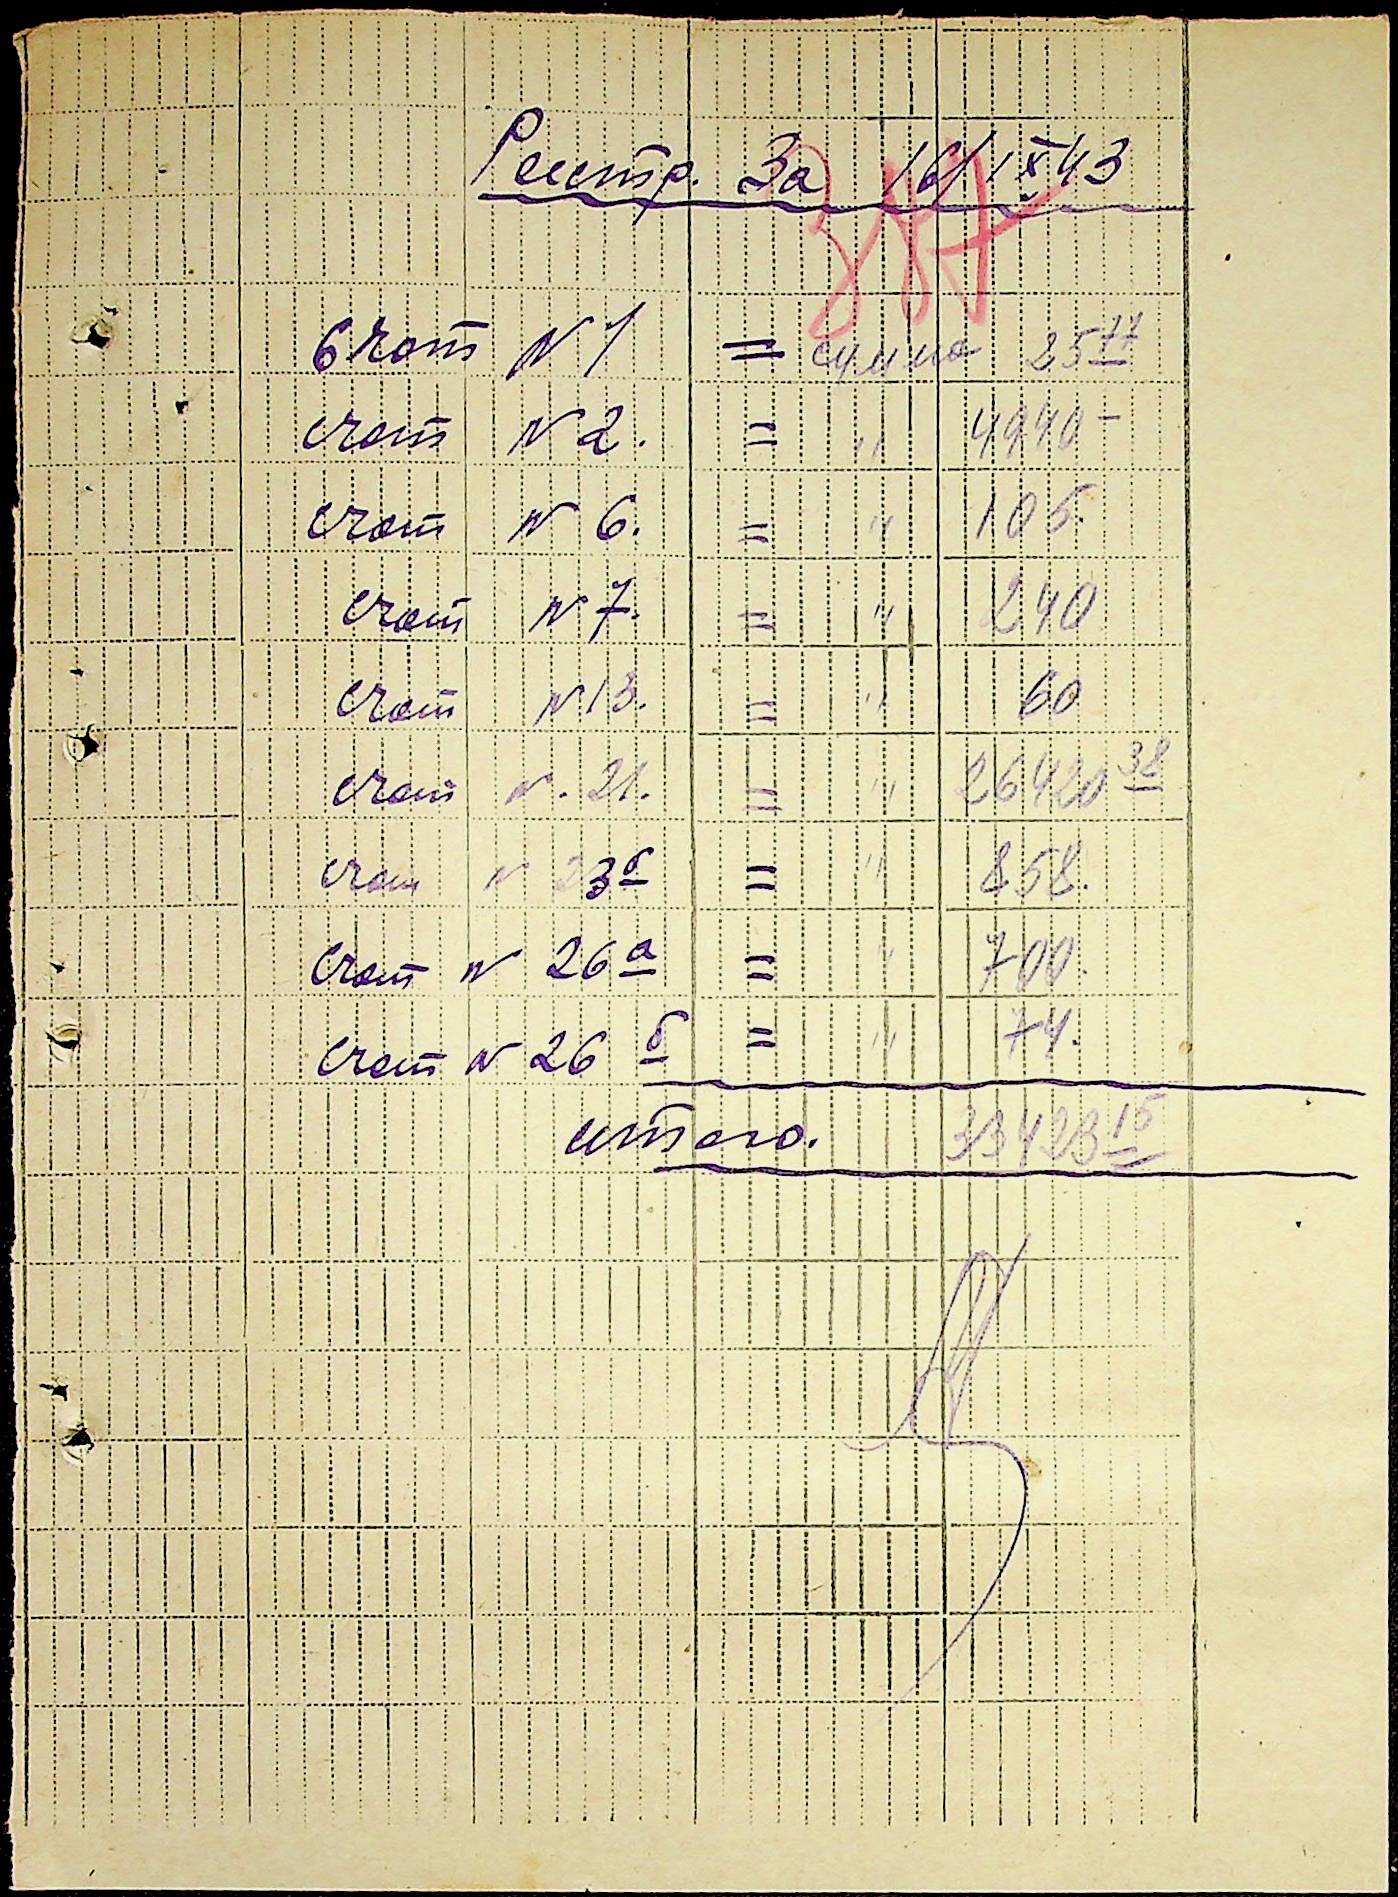 Реистр. За 16/IX 43
Счет N 1 = сумма 25 77
счет N 2. = " 4940 -
счет N 6. = " 105.
счет N 7. = " 240
счет N 13. = " 60
счет N. 21. = " 26420 38
счет N 23 б = " 858.
счет N 26 а = " 700.
счет N 26 б = " 74.
итого. 33423 15